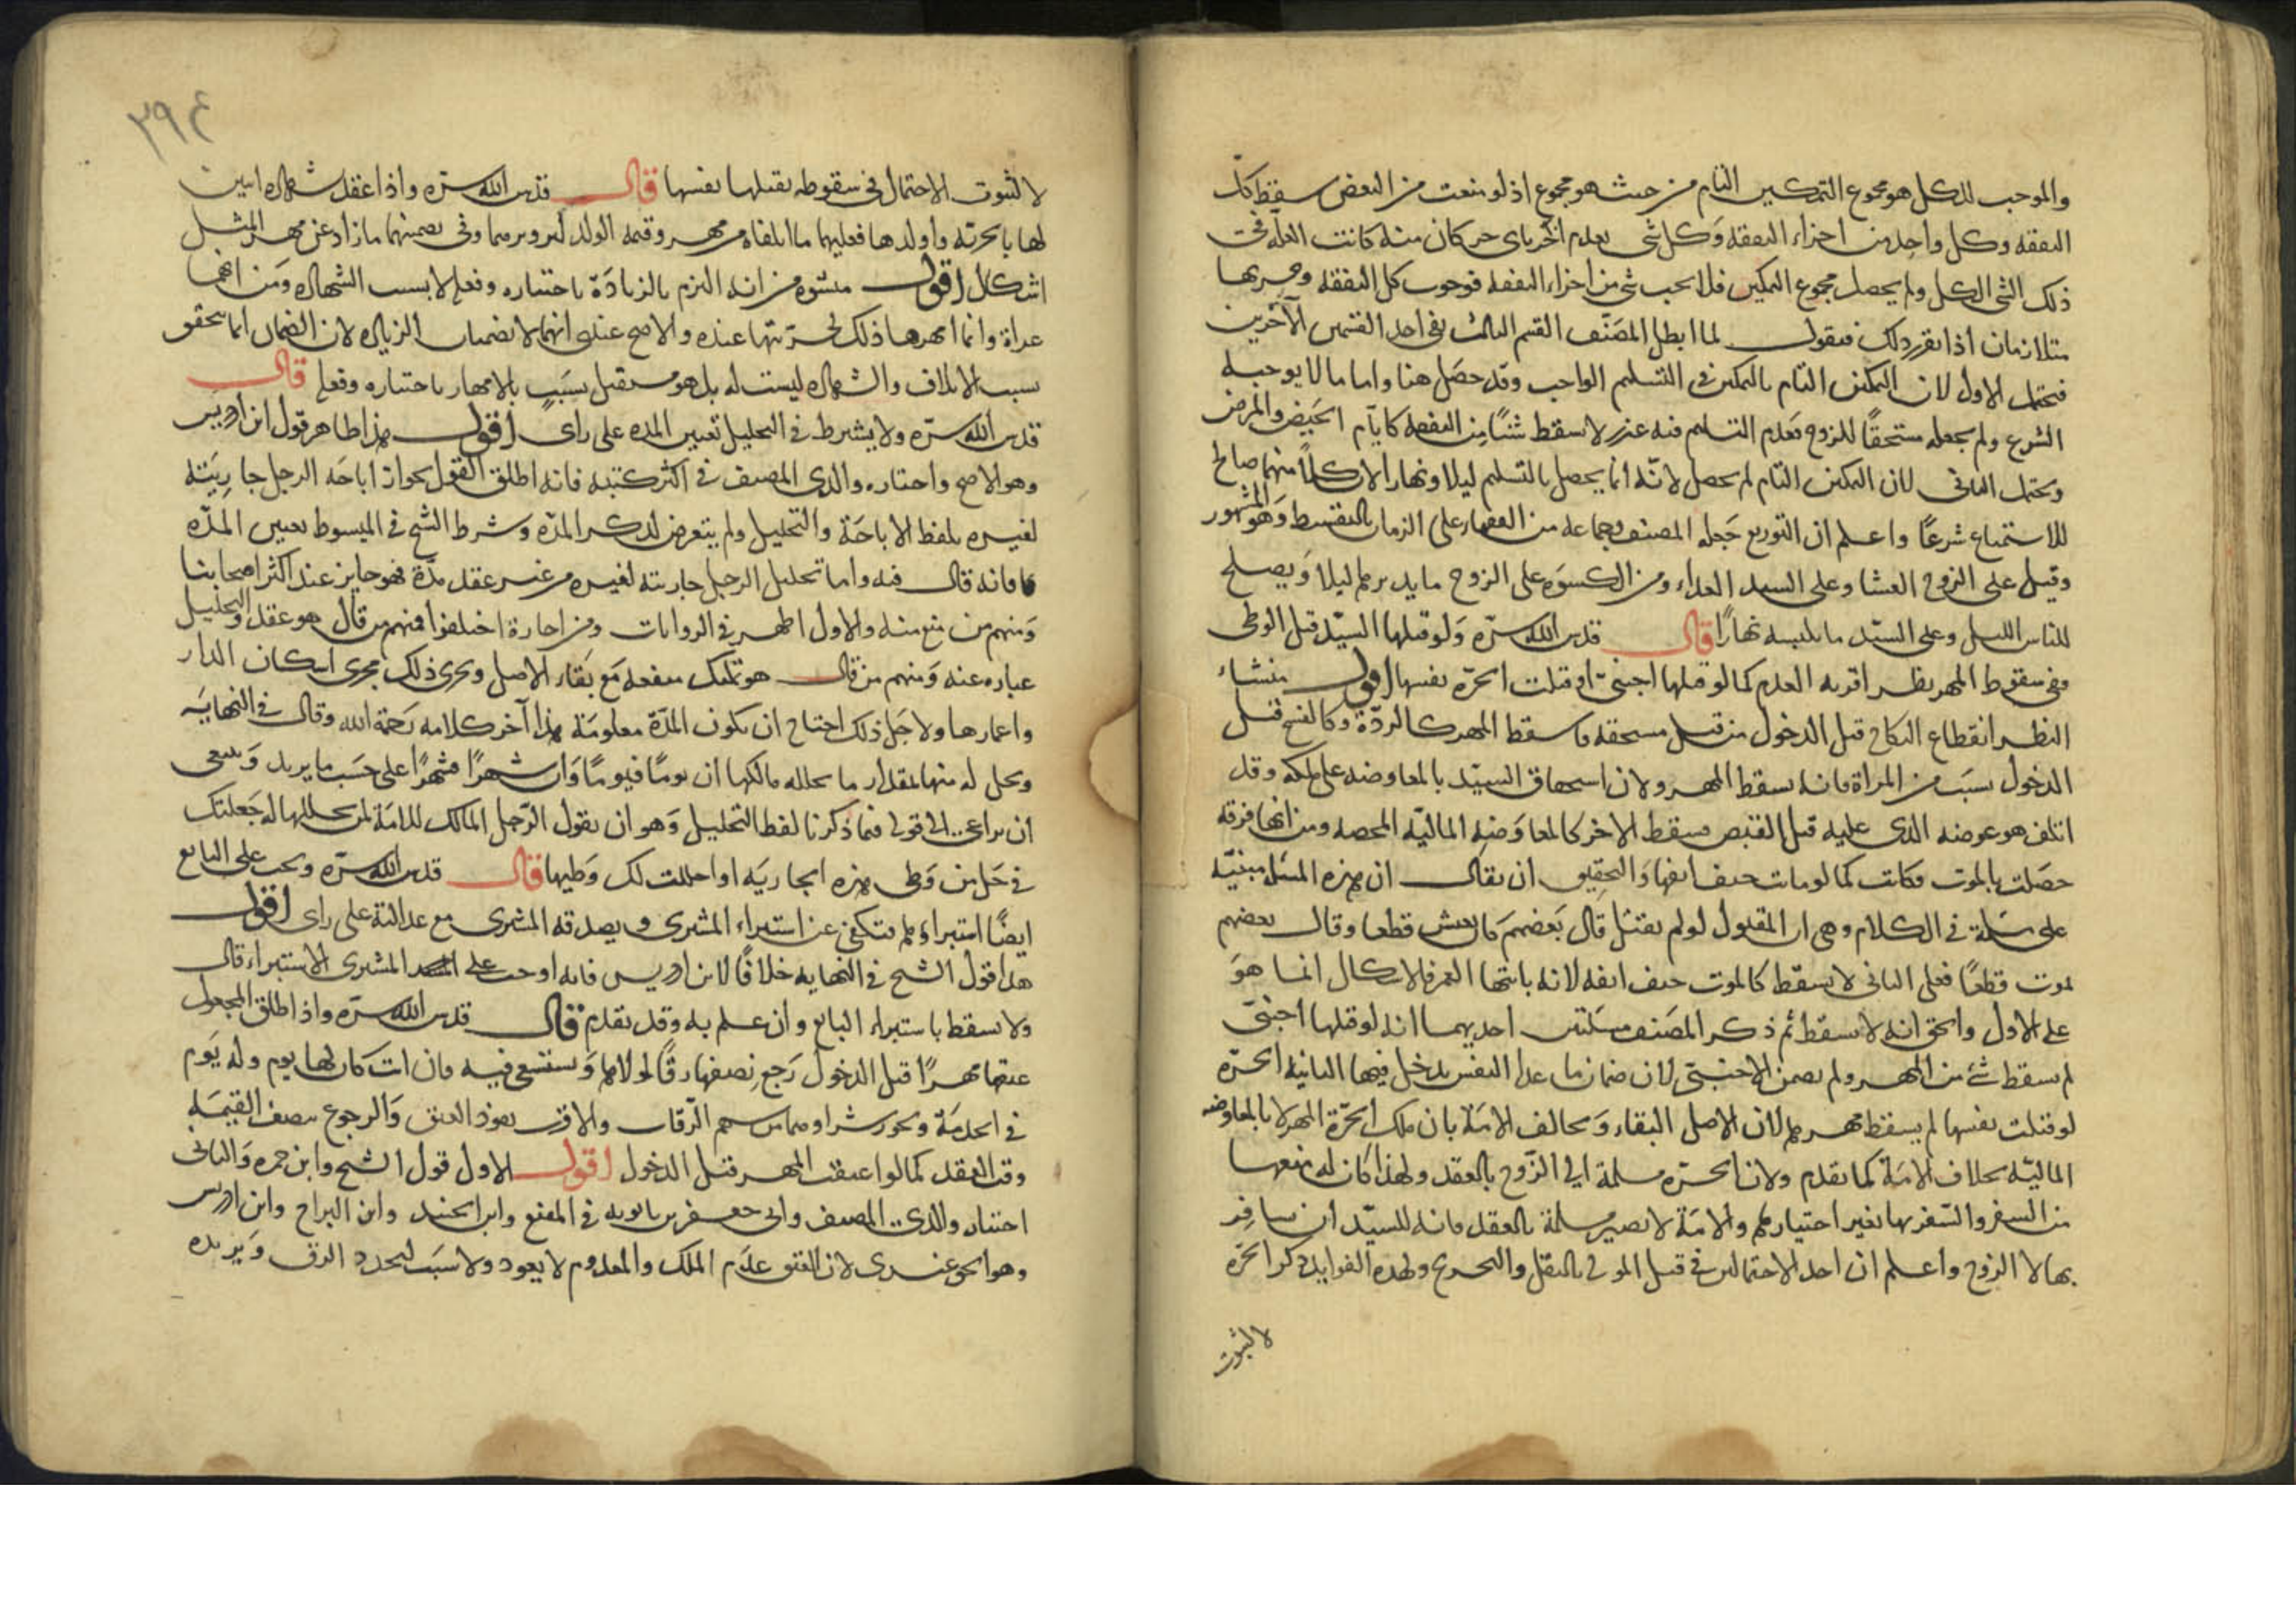 والموجب للكل هو مجموع التمكين التام من حيث هو مجموع اذ لو منعت من البعض سقط كل
النفقه وكل واحد من اجزاء النفقه وكل شى يعدم آخر باى جزء كان منه كانت العلة فى
ذلك الشى الكل ولم يحصل مجموع التمكين فلا يجب شى من اجزاء النفقه فوجوب كل النفقه وجزيها
متلازمان اذا تقرر ذلك فنقول لما ابطل المصنف القسم الثالث بقى احد القسمين الآخرين
فيحتمل الاول لان التمكين التام بالتمكين فى التسليم الواجب وقد حصل هنا واما ما لا يوجبه
الشرع ولم يجعله مستحقا للزوج فعدم التسليم فيه عذر لا يسقط شيئا من النفقه كايام الحيض والمرض
ويحتمل الثانى لان التمكين التام لم يحصل لانه انما يحصل بالتسليم ليلا ونهارا لان كلا منهما صالح
للاستمتاع شرعا واعلم ان التوزيع جعله المصنف وجماعه من الفقهاء على الزمان بالتقسيط وهو المشهور
وقيل على الزوج العشا وعلى السيد الغداء ومن الكسوه على الزوج ما يدبرهم ليلا ويصلح
للباس الليل وعلى السيد ما يلبسه نهارا قال قدس الله سره ولو قتلها السيد قبل الوطى
ففى سقوط المهر نظر اقربه العدم كما لو قتلها اجنبى او قتلت الحره نفسها اقول منشاء
النظر انقطاع النكاح قبل الدخول من قبل مستحقه فاسقط المهر كالردة وكالفسخ قبل
الدخول بسبب من المراة فانه يسقط المهر ولان استحقاق السيد بالمعاوضه على ملكه وقد
اتلف هو عوضه الذى عليه قبل القبض فيسقط الاخر كالمعاوضه الماليه المحضه ومن انها فرقه
حصلت بالموت فكانت كما لو ماتت حتف انفها والتحقيق ان يقال ان هذه المسئلة مبنيه
على مسئلة فى الكلام وهى ان المقتول لو لم يقتل قال بعضهم كان يعيش قطعا وقال بعضهم
يموت قطعا فعلى الثانى لا يسقط كالموت حتف انفه لانه بانتهاء العمر فلا اشكال انما هو
على الاول والحق انه لا يسقط ثم ذكر المصنف مسئلتين احديهما انه لو قتلها اجنبى
لم يسقط شئ من المهر ولم يضمن الاجنبى لان ضمان ما عدا النفس يدخل فيها الثانية الحره
لو قتلت نفسها لم يسقط مهرها لان الاصل البقاء وتخالف الامة بان ملك الحرة المهر لا بالمعاوضه
الماليه بخلاف الامة كما تقدم ولان الحره مسلمة الى الزوج بالعقد ولهذا كان له منعها
من السفر والسفر بها بغير اختيارها والامة لا تصير مسلمة بالعقد فانه للسيد ان يسافر
بها لا الزوج واعلم ان احد الاحتمالين فى قتل المولى بالنقل والتخريج ولهذه الفوايد ذكر الحره
لا لثبوت
٣٩٤
لا لثبوت الاحتمال فى سقوطه بقتلها نفسها قال قدس الله سره واذا عقد بشهاده اثنين
لها بالحريه واولدها فعليهما ما اتلفاه من مهر وقيمه الولد لتزويرهما وفى تضمينهما ما زاد عن مهر المثل
اشكال اقول منشؤه من انه التزم بالزيادة باختياره وفعله لا بسبب الشهاده ومن انهما
غراه وانما امهرها ذلك لحريتها عنده والاصح عندى انهما لا يضمنان الزياده لان الضمان انما يتحقق
بسبب الاتلاف والشهاده ليست له بل هو مستقل بسبب بالامهار باختياره وفعله قال
قدس الله سره ولا يشترط فى التحليل تعيين المده على راى اقول هذا ظاهر قول ابن ادريس
وهو الاصح واختاره والدى المصنف فى اكثر كتبه فانه اطلق القول بجواز اباحه الرجل جاريته
لغيره بلفظ الاباحة والتحليل ولم يتعرض لذكر المده وشرط الشيخ فى المبسوط تعيين المده
فانه قال فيه واما تحليل الرجل جاريته لغيره من غير عقد مدة فهو جايز عند اكثر اصحابنا
ومنهم من منع منه والاول اظهر فى الروايات ومن اجازة اختلفوا فمنهم من قال هو عقد والتحليل
عباره عنه ومنهم من قال هو تمليك منفعه مع بقاء الاصل ويجرى ذلك مجرى اسكان الدار
واعمارها ولاجل ذلك احتاج ان تكون المدة معلومة هذا آخر كلامه رحمة الله وقال فى النهايه
ويحل له منها مقدار ما يحلله مالكها ان يوما فيوما وان شهرا فشهرا على حسب ما يريد وينبغى
ان يراعى فيما ذكرنا لفظ التحليل وهو ان يقول الرجل المالك للامة لمن يحللها له جعلتك
فى حل من وطى هذه الجاريه او احللت لك وطيها قال قدس الله سره ويجب على البايع
ايضا استبراؤها فتكفى عن استبراء المشترى ويصدقه المشترى مع عدالته على راى اقول
هذا قول الشيخ فى النهايه خلافا لابن ادريس فانه اوجب على المشترى الاستبراء قال
ولا يسقط باستبراء البايع وان علم به وقد تقدم قال قدس الله سره واذا طلق المجعول
عتقها مهرا قبل الدخول رجع نصفها رقا لمولاها وتستسعى فيه فان ابت كان لها يوم وله يوم
فى الخدمة ويجوز شراوها من سهم الرقاب والاقرب نفوذ العتق والرجوع بنصف القيمه
وقت العقد كما لو اعتقت المهر قبل الدخول اقول الاول قول الشيخ وابن حمزه والثانى
اختاره والدى المصنف وابى جعفر بن بابويه فى المقنع وابن الجنيد وابن البراج وابن ادريس
وهو الحق عندى لان العتق عدم الملك والمعدوم لا يعود ولا سبب لتجدد الرق ويريده